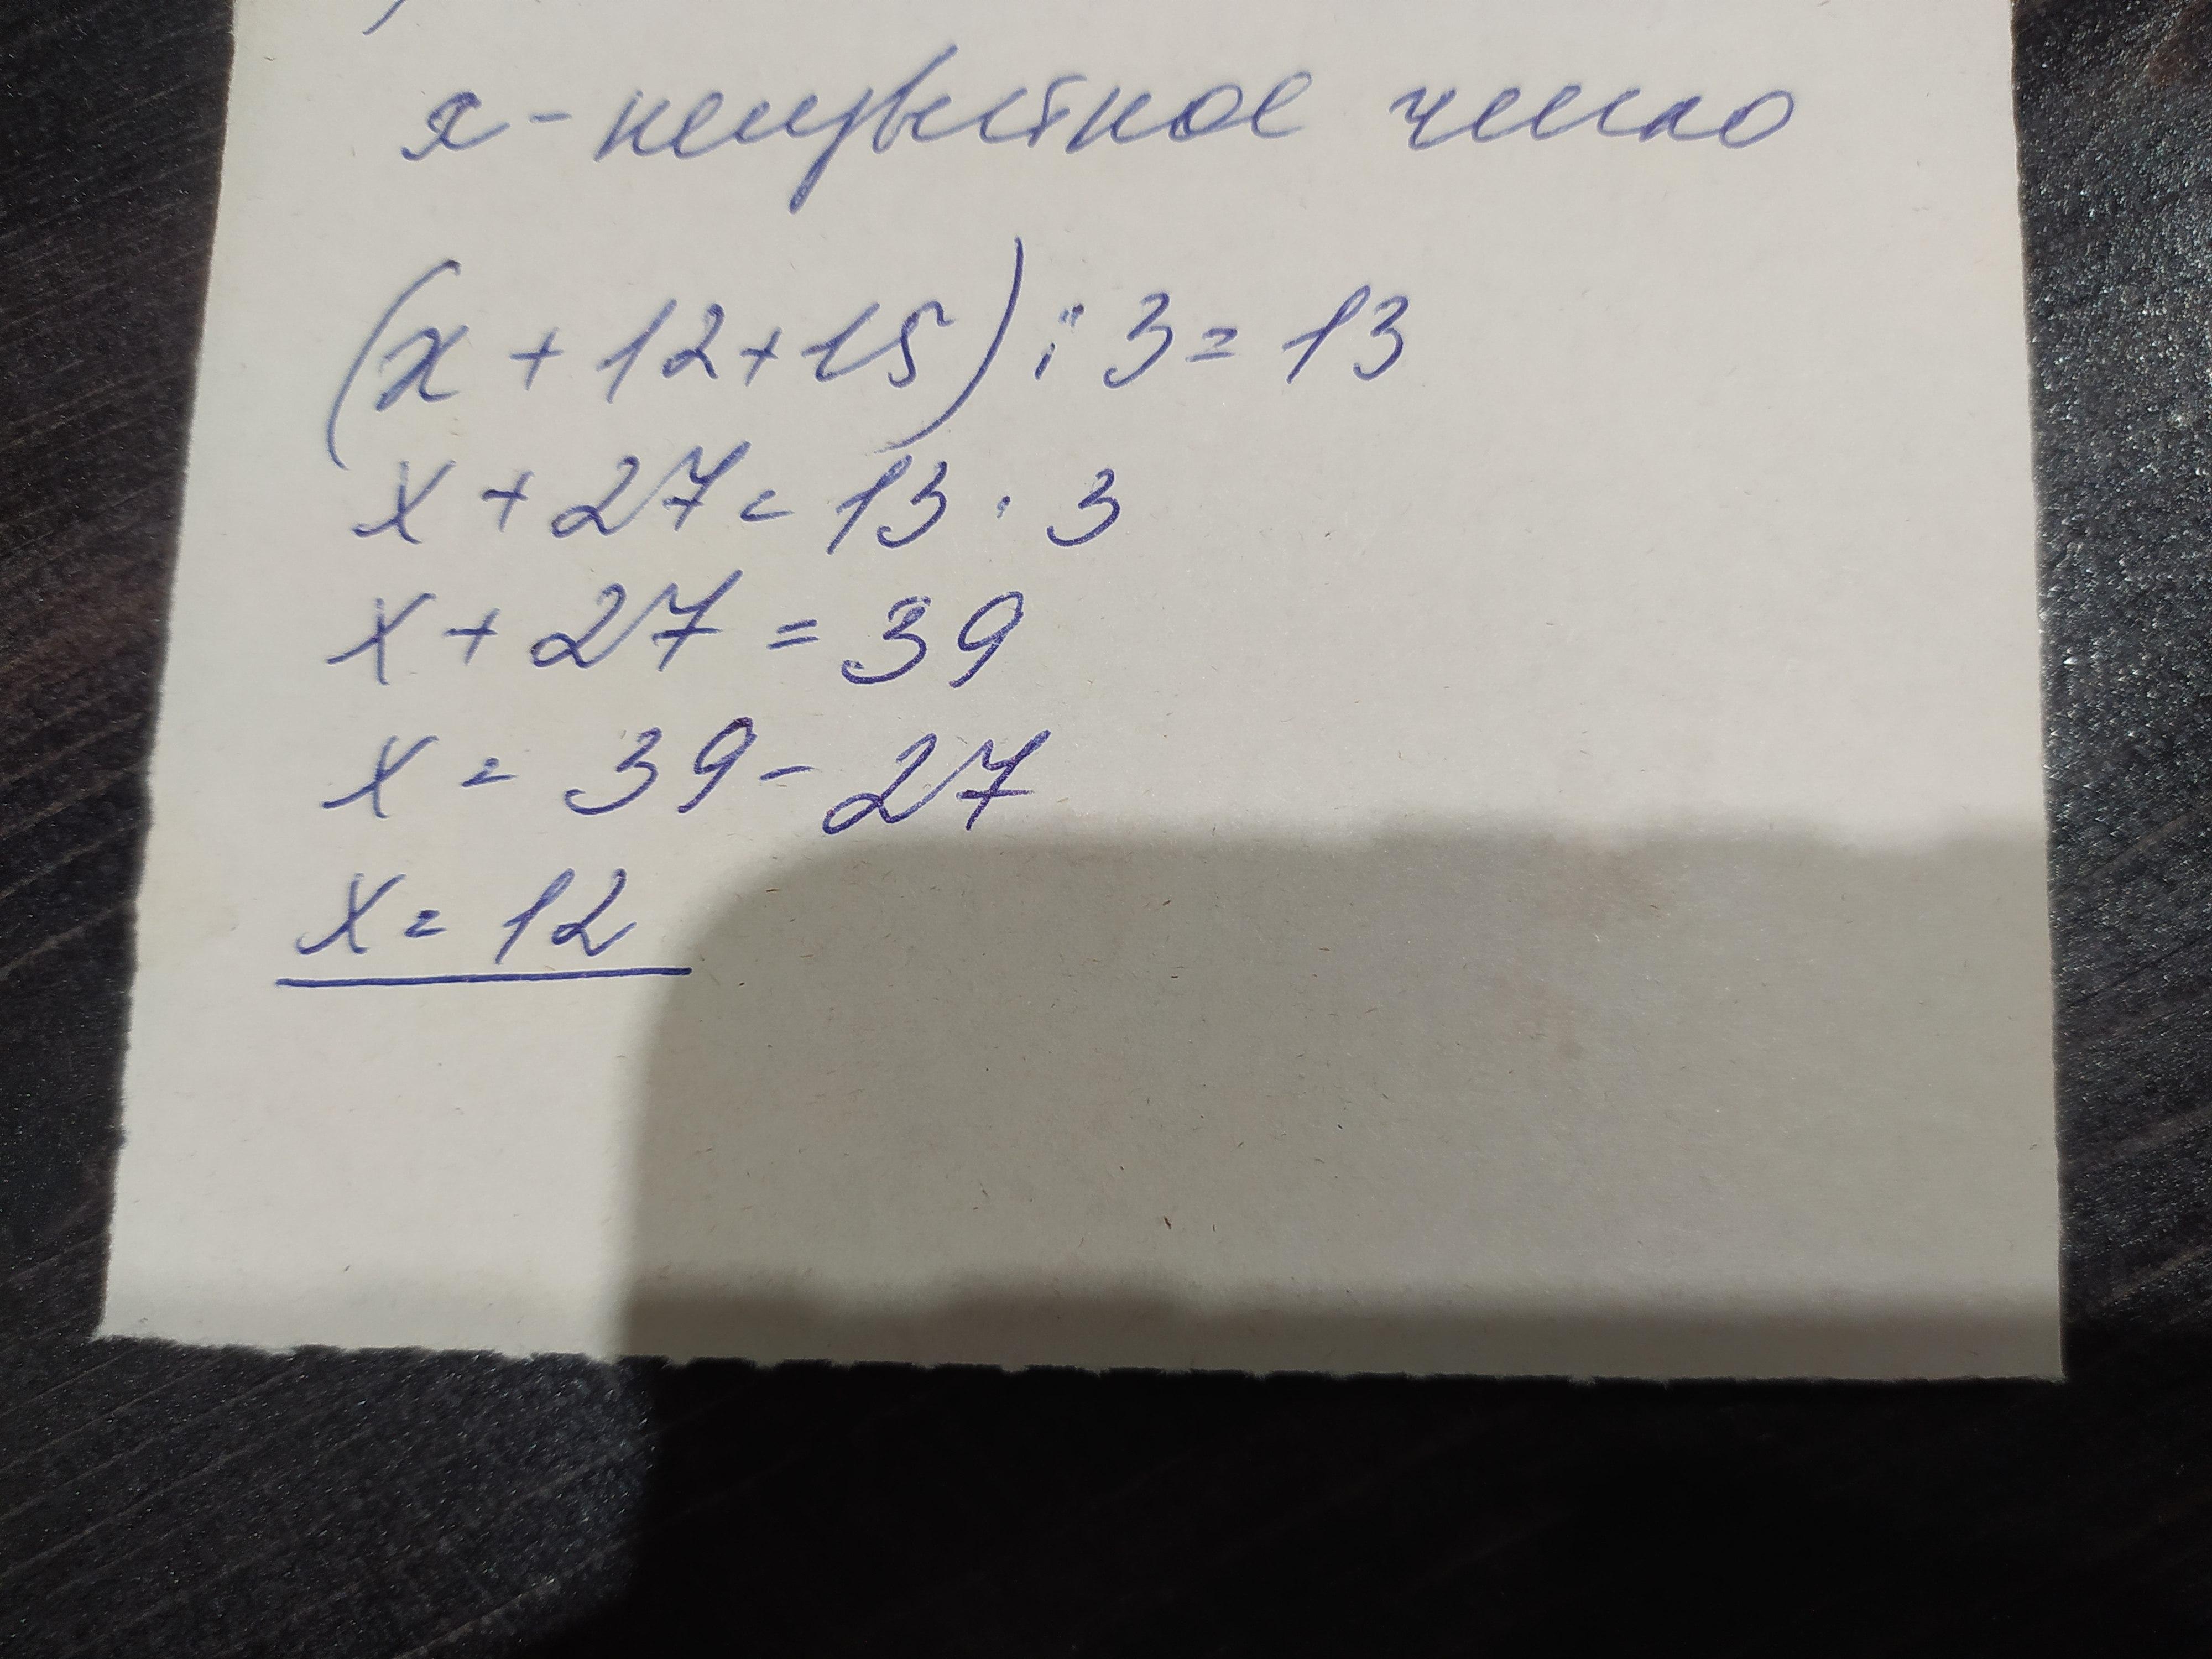 x - неизвестное число
(x + 12 + 15) : 3 = 13
x + 27 = 13 · 3
x + 27 = 39
x = 39 - 27
x = 12